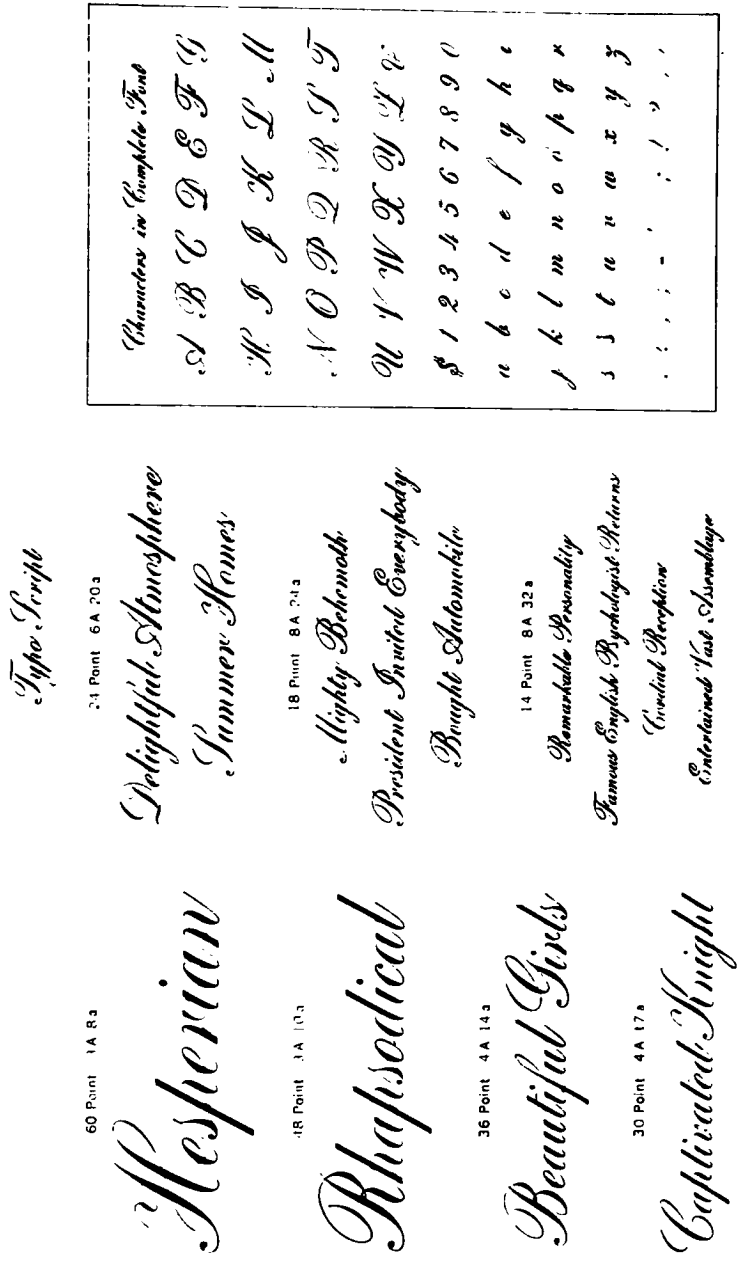 Typo Script
60 Point 3A 8a
Hesperian
48 Point 3A 10a
Rhapsodical
36 Point 4A 14a
Beautiful Girls
30 Point 4A 17a
Captivated Knight
24 Point 6A 20a
Delightful Atmosphere
Summer Homes
18 Point 8A 24a
Mighty Behemoth
President Invited Everybody
Bought Automobile
14 Point 8A 32a
Remarkable Personality
Famous English Psychologist Returns
Cordial Reception
Entertained Vast Assemblage
Characters in Complete Font
A B C D E F G
H I J K L M
N O P Q R S T
U V W X Y Z &
$ 1 2 3 4 5 6 7 8 9 0
a b c d e f g h i
j k l m n o p q r
s s t u v w x y z
. , ; : - ' ! ?